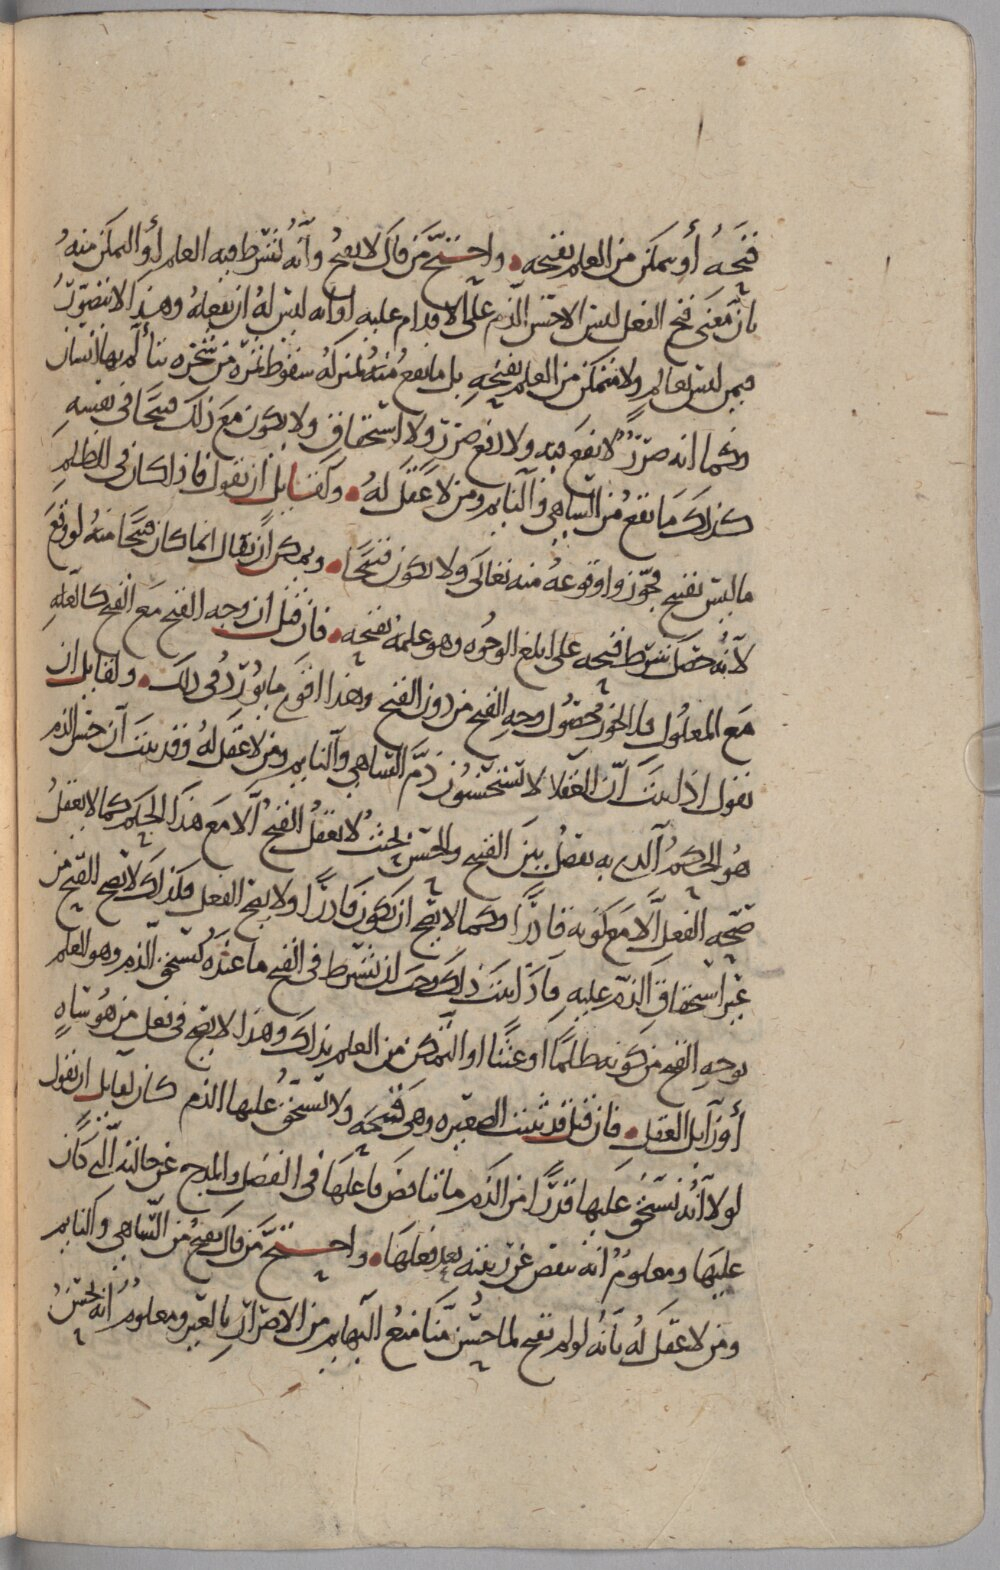 قبحه أو يمكن من العلم بقبحه • واحتج من قال لا يقبح وأنه يشترط فيه العلم أو التمكن منه
بأن معنى قبح الفعل ليس الا حسن الذم على الاقدام عليه او انه ليس له ان يفعله وهذا لا يتصور
فيمن ليس بعالم ولا متمكن من العلم بقبحه بل ما يقع منه بمنزلة سقوط ثمرة من شجرة يتألم بها انسان
وكما انه ضرر لا نفع فيه ولا دفع ضرر ولا استحقاق ولا يكون مع ذلك قبيحا في نفسه
كذلك ما يقع من الساهي والنايم ومن لا عقل له • ولقايل ان يقول فاذا كان في الظلم
ما ليس بقبيح فجوزوا وقوعه منه تعالى ولا يكون قبيحا • ويمكن ان يقال انما كان قبيحا منه لو وقع
لأنه حصل شرط قبحه على ابلغ الوجوه وهو علمه بقبحه • فان قيل ان وجه القبح مع القبح كالعلة
مع المعلول فلا يجوز حصول وجه القبح من دون القبح وهذا اقوى ما يورد في ذلك • ولقايل ان
يقول اذا ثبت أن العقلا لا يستحسنون ذم الساهي والنايم ومن لا عقل له وقد ثبت أن حسن الذم
هو الحكم الذي به يفصل بين القبيح والحسن بحيث لا يعقل القبح الا مع هذا الحكم كما لا يعقل
صحة الفعل الا مع كونه قادرا وكما لا يصح ان يكون قادرا ولا يصح الفعل فكذلك لا يصح القبح من
غير استحقاق الذم عليه فاذا ثبت ذلك وجب ان يشترط في القبح ما عنده يستحق الذم وهو العلم
بوجه القبح من كونه ظلما او عبثا او التمكن من العلم بذلك وهذا لا يصح في فعل من هو ساه
أو زايل العقل • فان قيل قد ثبتت الصغيرة وهي قبيحة ولا يستحق عليها الذم كان لقايل ان يقول
لولا أنه يستحق عليها قدرا من الذم ما تناقص فاعلها في الفضل والمدح عن حالته التي كان
عليها ومعلوم انه ينقص عن رتبته بعد فعلها • واحتج من قال يقبح من الساهي والنايم
ومن لا عقل له بأنه لو لم يقبح لما حسن منا منع البهايم من الاضرار بالغير ومعلوم أنه يحسن